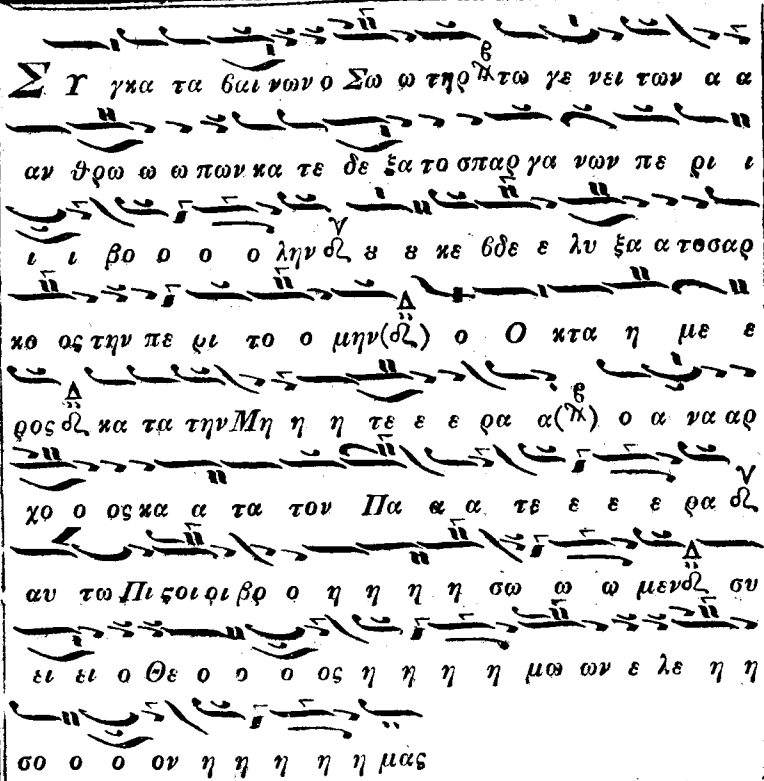 Σ Υ γκα τα ϐαι νων ο Σω ω τηρ τω γε νει των α α
αν θρω ω ω πων κα τε δε ξα το σπαρ γα νων πε ρι ι
ι ι βο ο ο ο λην ȣ ȣ κε ϐδε ε λυ ξα α τοσαρ
κο ος την πε ρι το ο μην( ) ο Ο κτα η με ε
ρος κα τα την Μη η η τε ε ε ρα α( ) ο α να αρ
χο ο ος κα α τα τον Πα α α τε ε ε ε ρα
αυ τω Πι ϛοι οι βρ ο η η η η σω ω ω μεν συ
ει ει ο Θε ο ο ο ος η η η η μω ων ε λε η η
σο ο ο ον η η η η η μας